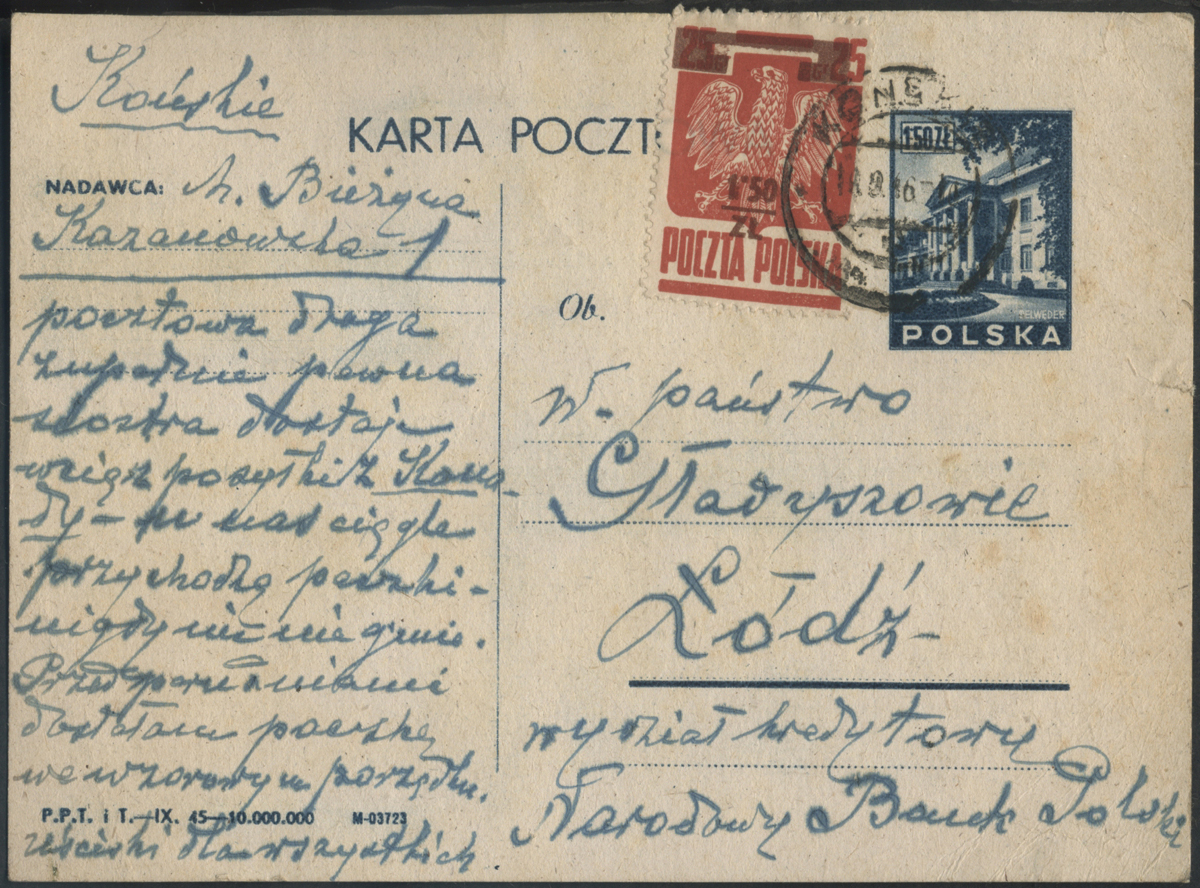 Końskie
KARTA POCZT
NADAWCA: M. Bieżyna
Kazanowska 1
pocztowa droga
zupełnie pewna
siostra dostaje
wciąż posyłki z Kana-
dy – u nas ciągle
przychodzą paczki –
nigdy nic nie ginie.
Przed paru dniami
dostałam paczkę
we wzorowym porządku.
uściski dla wszystkich
P.P.T. i T.—IX. 45—10.000.000 M-03723
25 25
1'50
ZŁ
POCZTA POLSKA
1.50 ZŁ
BELWEDER
POLSKA
Ob.
W. państwo
Gładyszowie
Łódź
wydział kredytowy
Narodowy Bank Polski